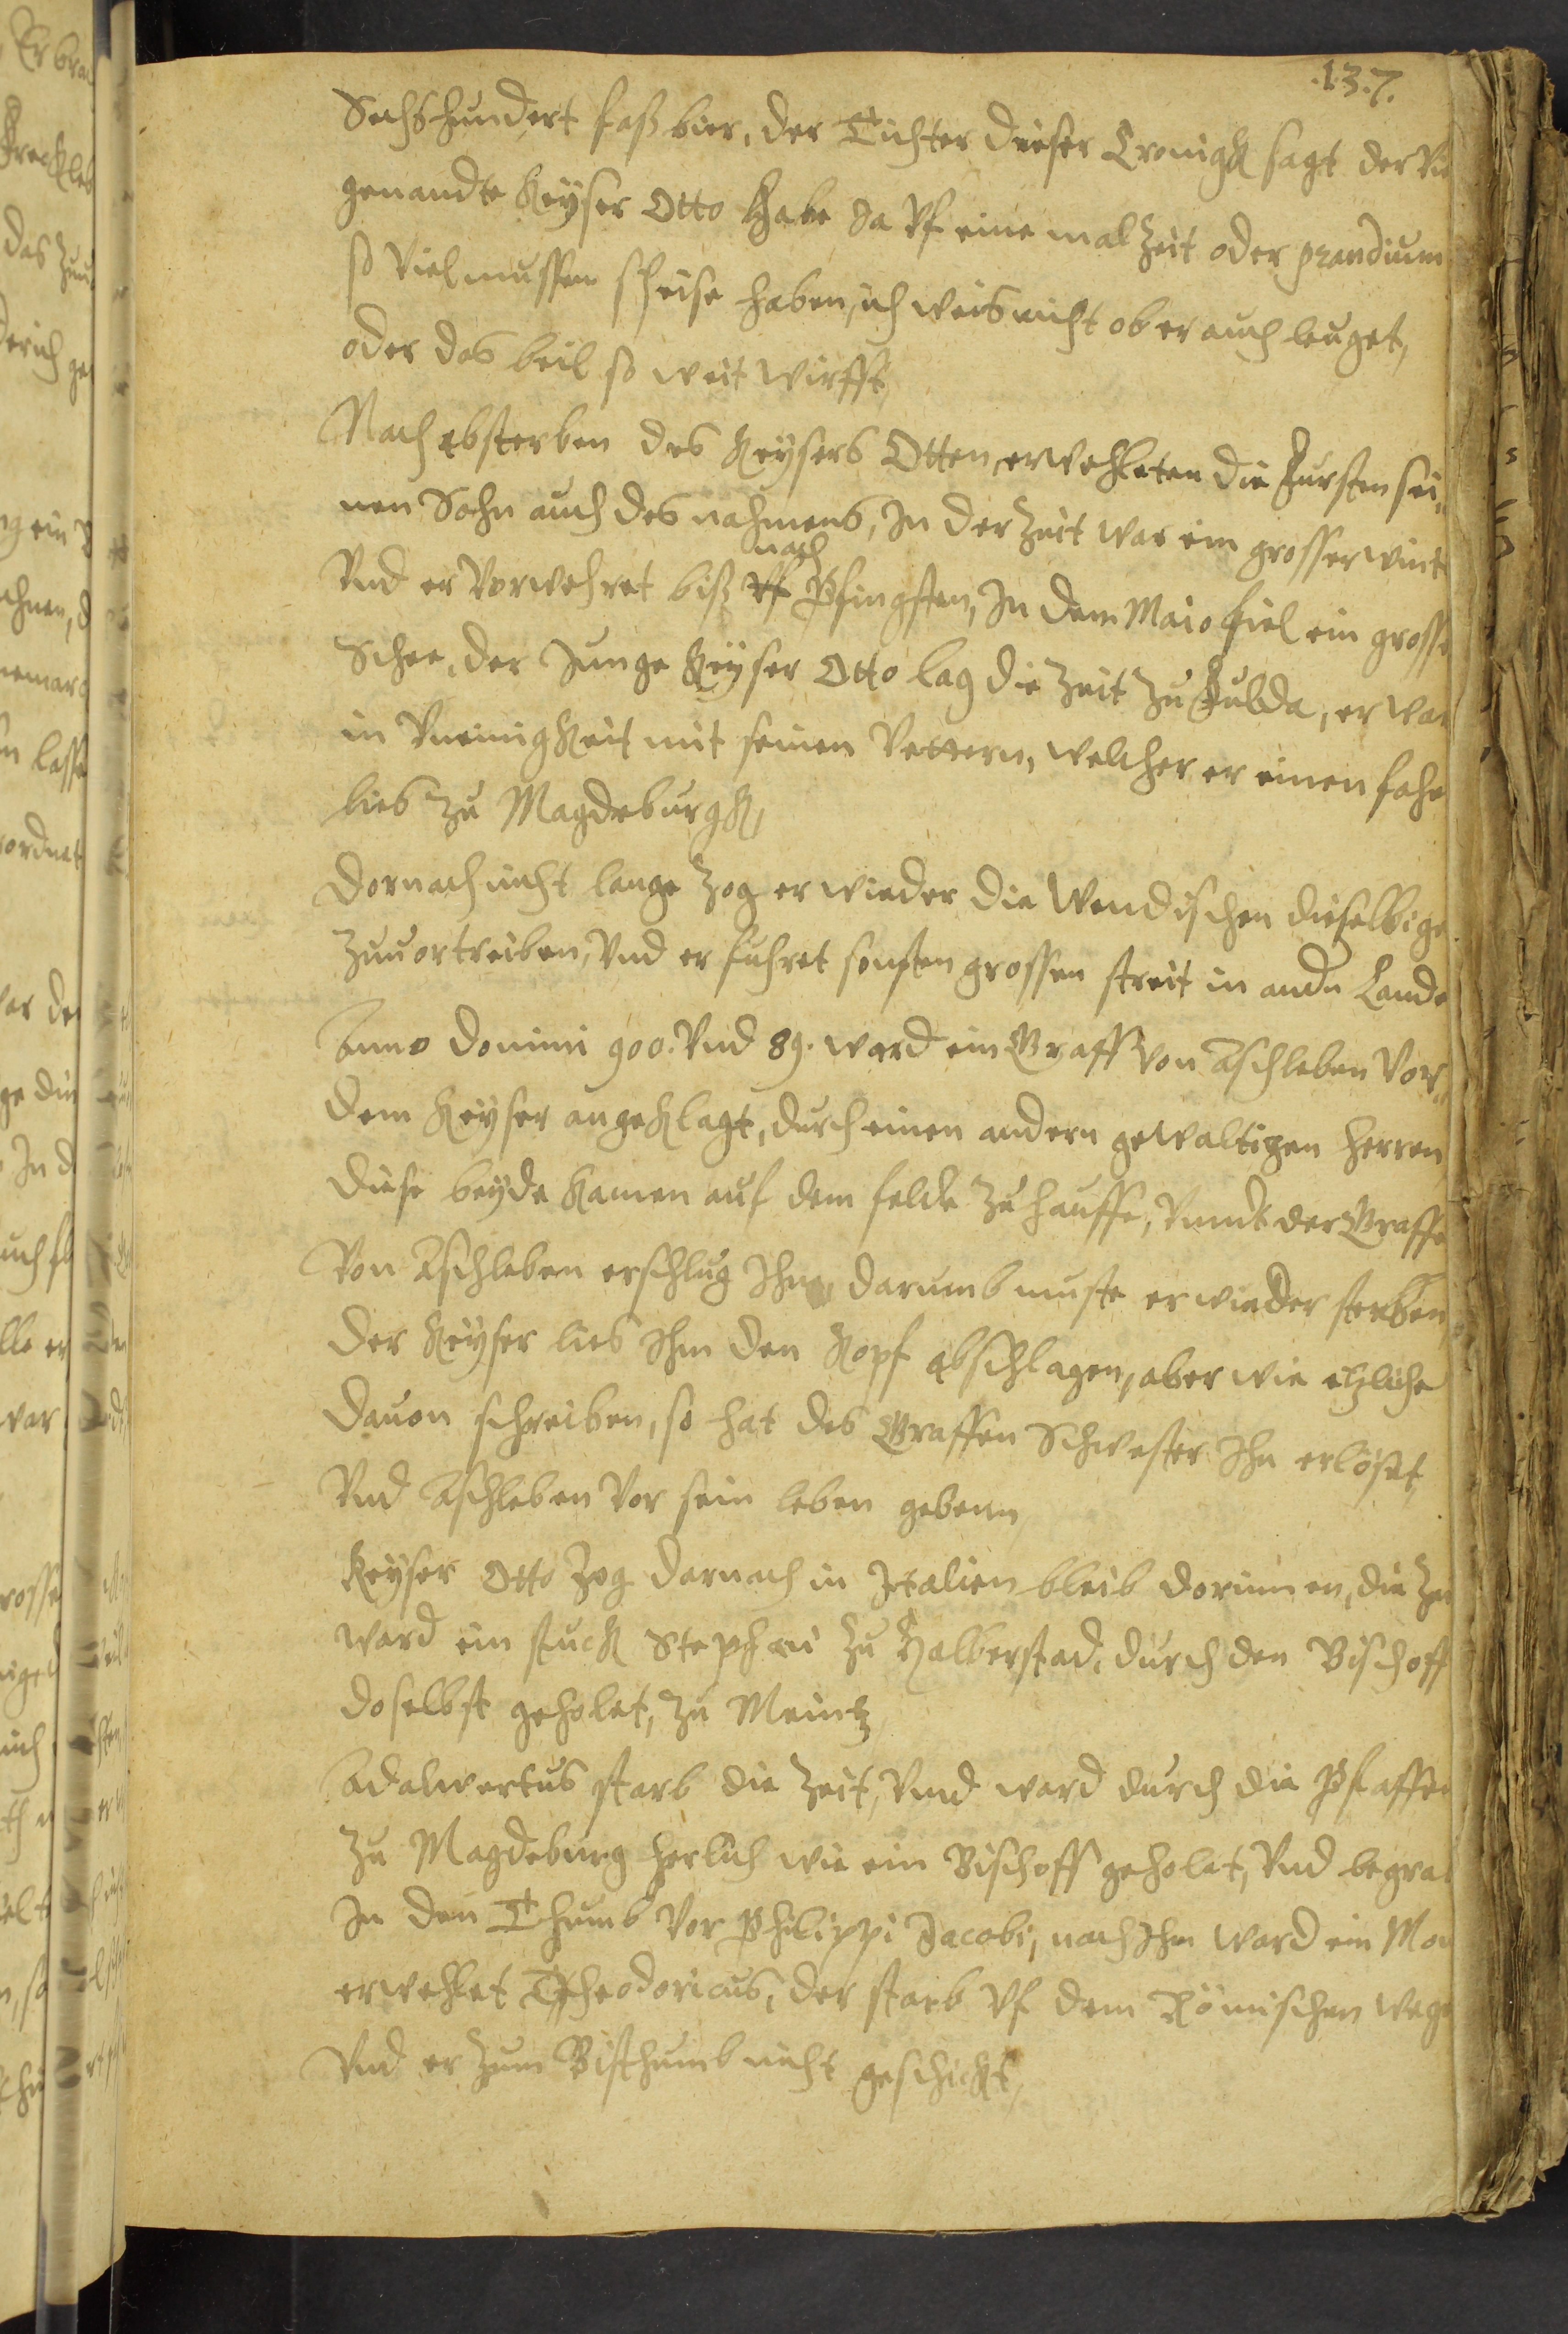 137.
Sechshundert faß bier, der Tichter dieser Cronigk sagt der
genandte Keyser Otto habe da Vf eine malzeit oder prandium
so viel mussen speise haben, ich weis nicht ob er auch leuget,
oder das beil so weit wirfft,
Nach absterben des Keysers Otten, erwehleten die Fursten sei-
nen Sohn auch des nahmens, In der Zeit war ein grosser
nach
Vnd er Vorwehret biß Vf Pfingsten, In dem Maio fiel ein grosse
Schee, der Junge Keyser Otto lag die Zeit zu Fulda, er war
in Vneinigkeit mit seinen Vettern, welcher er einen
lies zu Magdeburgk,
Dornach nicht lange zog er wieder die Wendischen dieselbige
zuuortreiben, Vnd er fuhret sonsten grossen streit in andn Lande
Anno Domini 900. Vnd 89. ward ein Graff von Aschleben Vor
dem Keyser angeklagt, durch einen andern gewaltigen herren
Diese beyde kamen auf dem felde zuhauffe, Vnndt der Graffe
Von Aschleben erschlug Ihn, darumb muste er wieder sterben
Der Keyser lies Ihm den Kopf abschlagen, aber wie etzliche
Dauon schreiben, so hat des Graffen Schwester Ihn erlöset,
Vnd Aschleben Vor sein leben gebenn
Keyser Otto zog darnach in Italien bleib dorinnen, die
ward ein stuck Stephani zu Halberstad, durch den Bischoff
doselbst geholet, zu Meintz
Adalwertus starb die Zeit, Vnd ward durch die Pfaffen
zu Magdeburg herlich wie ein Bischoff geholet, Vnd
In den Thumb Vor Philippi Jacobi, nach Ihm ward ein
erwehlet Theodoricus, der starb Vf dem Römischen wege
Vnd er zum Bisthumb nicht geschickt,